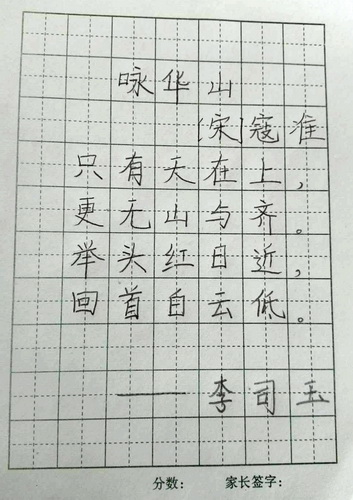 咏华山
[宋]寇准
只有天在上，
更无山与齐。
举头红日近，
回首自云低。
——李司玉
分数： 家长签字：